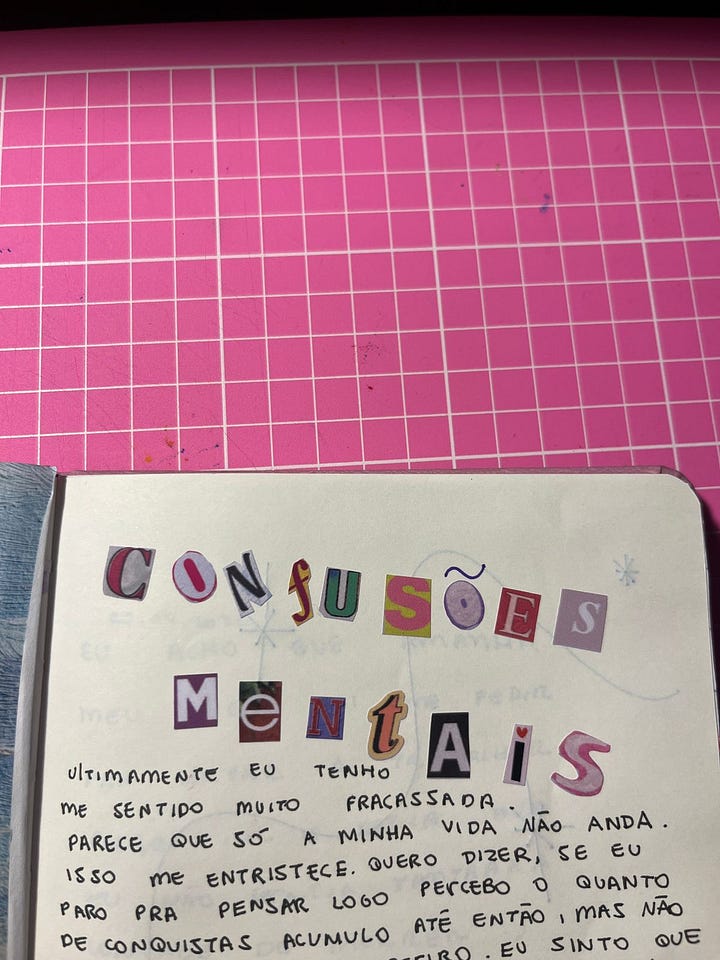 CONfUSÕES
MeNtAiS
ULTIMAMENTE EU TENHO
ME SENTIDO MUITO FRACASSADA.
PARECE QUE SÓ A MINHA VIDA NÃO ANDA.
ISSO ME ENTRISTECE. QUERO DIZER, SE EU
PARO PRA PENSAR LOGO PERCEBO O QUANTO
DE CONQUISTAS ACUMULO ATÉ ENTÃO, MAS NÃO
. EU SINTO QUE